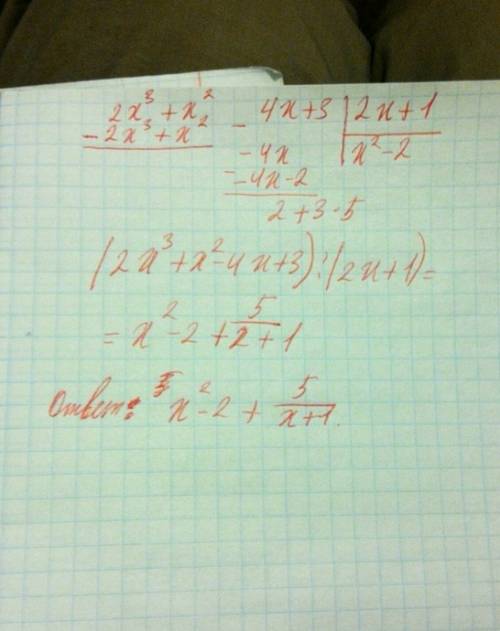 2x³ + x² - 4x + 3 | 2x + 1
- 2x³ + x² | x² - 2
- 4x
- - 4x - 2
2 + 3 - 5
(2x³ + x² - 4x + 3) : (2x + 1) =
= x² - 2 + 5/(x + 1)
Ответ: x² - 2 + 5/(x + 1).